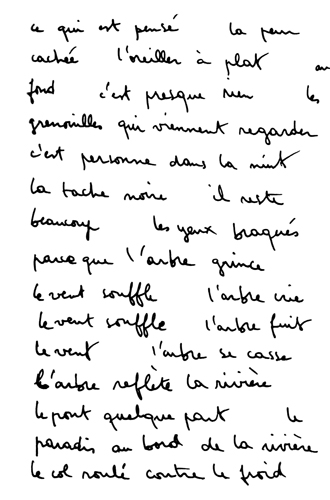 ce qui est pensé la peur
cachée l'oreiller à plat au
fond c'est presque rien les
grenouilles qui viennent regarder
c'est personne dans la nuit
la tache noire il reste
beaucoup les yeux braqués
parce que l'arbre grince
le vent souffle l'arbre crie
le vent souffle l'arbre fuit
le vent l'arbre se casse
l'arbre reflète la rivière
le pont quelque part le
paradis au bord de la rivière
le col roulé contre le froid